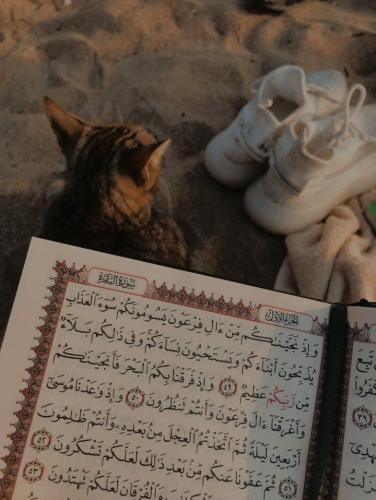 الجزء الأول
سورة البقرة
وَإِذْ نَجَّيْنَٰكُم مِّنْ ءَالِ فِرْعَوْنَ يَسُومُونَكُمْ سُوٓءَ ٱلْعَذَابِ
يُذَبِّحُونَ أَبْنَآءَكُمْ وَيَسْتَحْيُونَ نِسَآءَكُمْ ۚ وَفِى ذَٰلِكُم بَلَآءٌ
مِّن رَّبِّكُمْ عَظِيمٌ ٤٩ وَإِذْ فَرَقْنَا بِكُمُ ٱلْبَحْرَ فَأَنجَيْنَٰكُمْ
وَأَغْرَقْنَآ ءَالَ فِرْعَوْنَ وَأَنتُمْ تَنظُرُونَ ٥٠ وَإِذْ وَٰعَدْنَا مُوسَىٰٓ
أَرْبَعِينَ لَيْلَةً ثُمَّ ٱتَّخَذْتُمُ ٱلْعِجْلَ مِنۢ بَعْدِهِۦ وَأَنتُمْ ظَٰلِمُونَ
٥١ ثُمَّ عَفَوْنَا عَنكُم مِّنۢ بَعْدِ ذَٰلِكَ لَعَلَّكُمْ تَشْكُرُونَ ٥٢
وَٱلْفُرْقَانَ لَعَلَّكُمْ تَهْتَدُونَ ٥٣